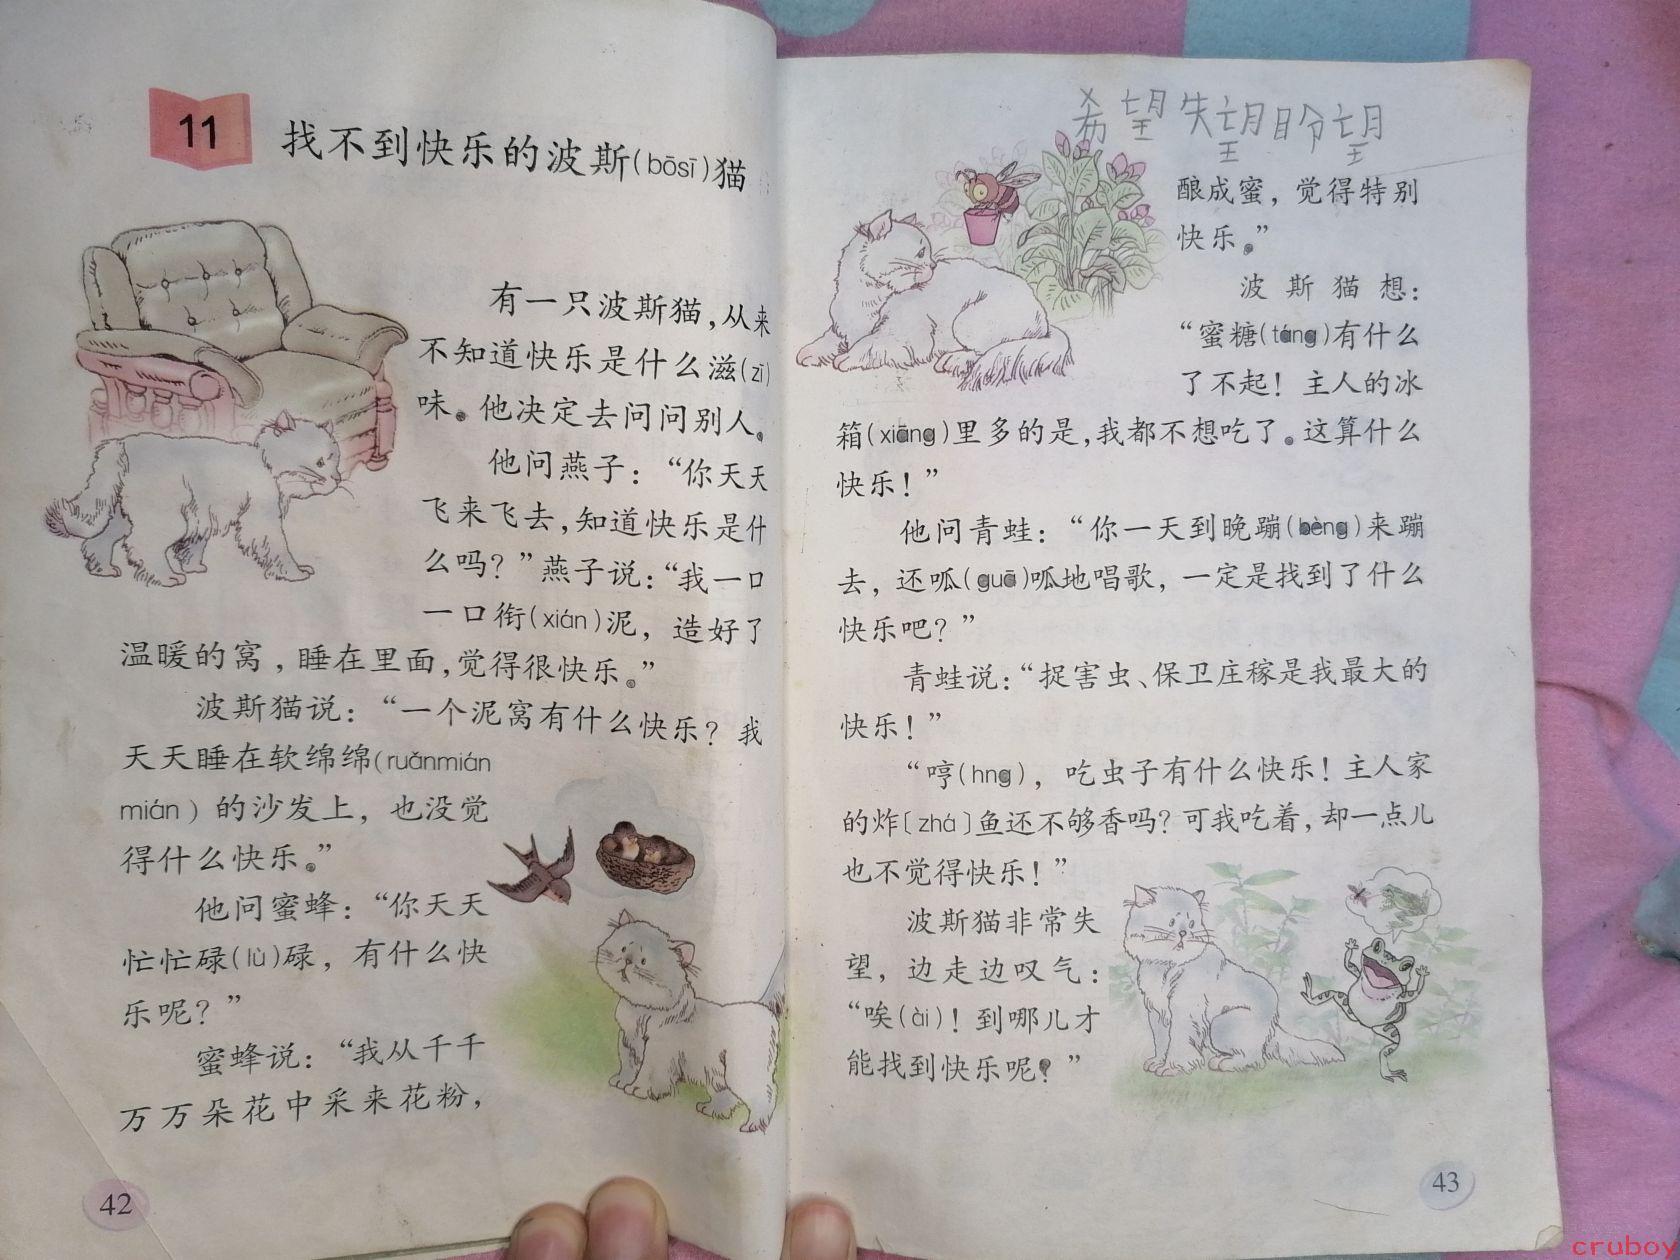 11
找不到快乐的波斯(bōsī)猫
有一只波斯猫，从来
不知道快乐是什么滋(zī)
味。他决定去问问别人。
他问燕子：“你天天
飞来飞去，知道快乐是什
么吗？”燕子说：“我一口
一口衔(xián)泥，造好了
温暖的窝，睡在里面，觉得很快乐。”
波斯猫说：“一个泥窝有什么快乐？我
天天睡在软绵绵(ruǎnmián
mián)的沙发上，也没觉
得什么快乐。”
他问蜜蜂：“你天天
忙忙碌(lù)碌，有什么快
乐呢？”
蜜蜂说：“我从千千
万万朵花中采来花粉，
42
希望 失望 盼望
酿成蜜，觉得特别
快乐。”
波斯猫想：
“蜜糖(táng)有什么
了不起！主人的冰
箱(xiāng)里多的是，我都不想吃了。这算什么
快乐！”
他问青蛙：“你一天到晚蹦(bèng)来蹦
去，还呱(guā)呱地唱歌，一定是找到了什么
快乐吧？”
青蛙说：“捉害虫、保卫庄稼是我最大的
快乐！”
“哼(hng)，吃虫子有什么快乐！主人家
的炸〔zhá〕鱼还不够香吗？可我吃着，却一点儿
也不觉得快乐！”
波斯猫非常失
望，边走边叹气：
“唉(ài)！到哪儿才
能找到快乐呢？”
43
cruboy